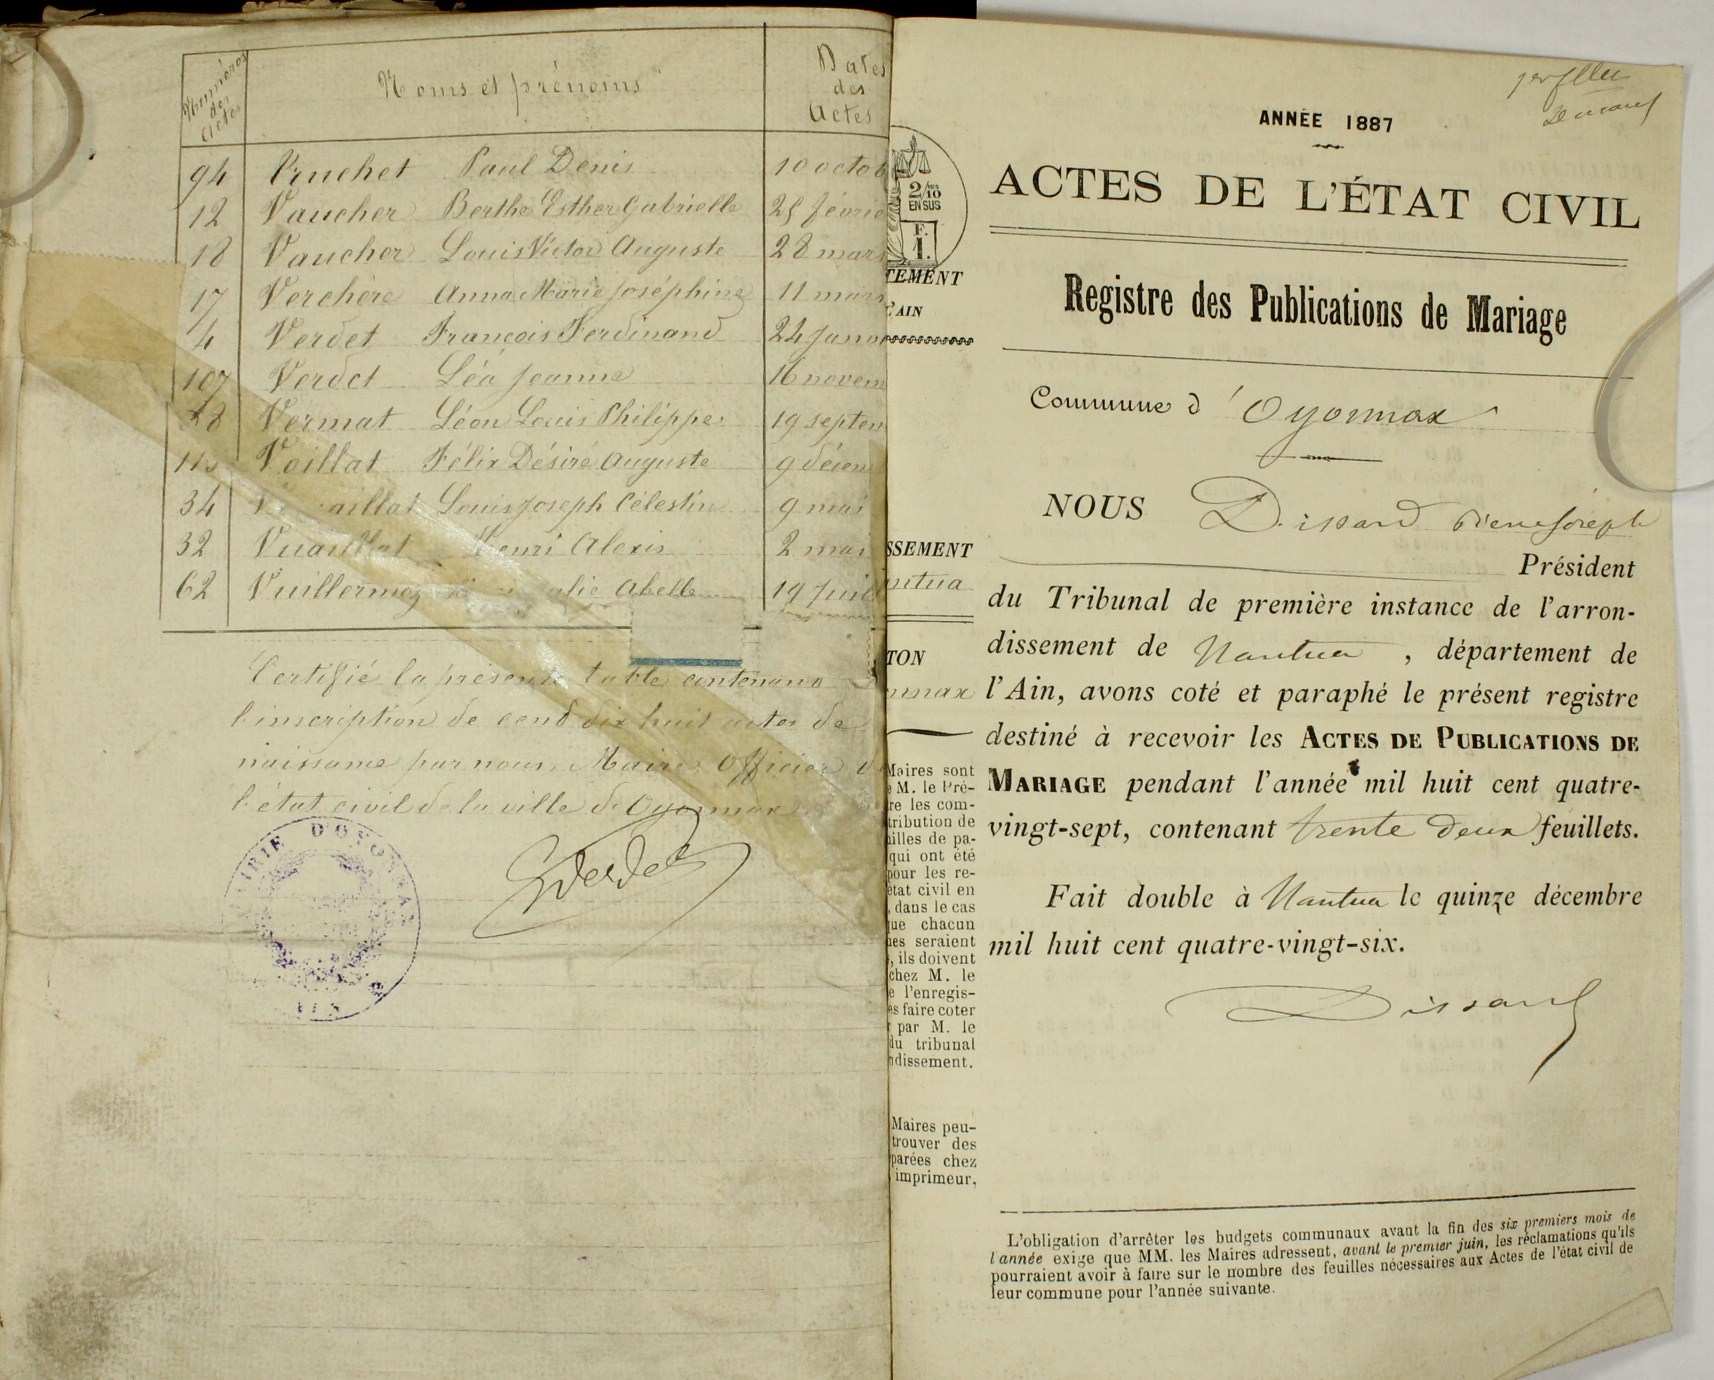 Numéros des Actes
Noms et prénoms
Dates des Actes
94 Truchet Paul Denis 10 octob
12 Vaucher Berthe Esther Gabrielle 25 févrie
18 Vaucher Louis Victor Auguste 28 mars
17 Verchère Anna Marie Joséphine 11 mars
4 Verdet François Ferdinand 24 janv
107 Verdet Léa Jeanne 16 novem
Vermat Léon Louis Philippe 19 septem
Voillat Félix Désiré Auguste 9 décem
34 Louis Joseph Célestin 9 mai
32 Vuaillat Henri Alexis 2 mai
62 Vuillermoz Abelle 19 Juil
Certifié la présente table contenant
l'inscription de cent dix huit actes de
naissance par nous, Maire, Officier de
l'état civil de la ville d'Oyonnax
Verdet
MAIRIE D'OYONNAX
AIN
2/10
EN SUS
F.
1.
TEMENT
AIN
SSEMENT
ntua
TON
nnax
Maires sont
M. le Pré-
re les com-
tribution de
illes de pa-
qui ont été
pour les re-
état civil en
, dans le cas
ue chacun
es seraient
, ils doivent
chez M. le
e l'enregis-
es faire coter
par M. le
du tribunal
ndissement.
Maires peu-
trouver des
parées chez
imprimeur.
1er fllet
Dissard
ANNÉE 1887
ACTES DE L'ÉTAT CIVIL
Registre des Publications de Mariage
Commune d'Oyonnax
NOUS Dissard Pierre Joseph
Président
du Tribunal de première instance de l'arron-
dissement de Nantua, département de
l'Ain, avons coté et paraphé le présent registre
destiné à recevoir les ACTES DE PUBLICATIONS DE
MARIAGE pendant l'année mil huit cent quatre-
vingt-sept, contenant trente deux feuillets.
Fait double à Nantua le quinze décembre
mil huit cent quatre-vingt-six.
Dissard
L'obligation d'arrêter les budgets communaux avant la fin des six premiers mois de
l'année exige que MM. les Maires adressent, avant le premier juin, les réclamations qu'ils
pourraient avoir à faire sur le nombre des feuilles nécessaires aux Actes de l'état civil de
leur commune pour l'année suivante.